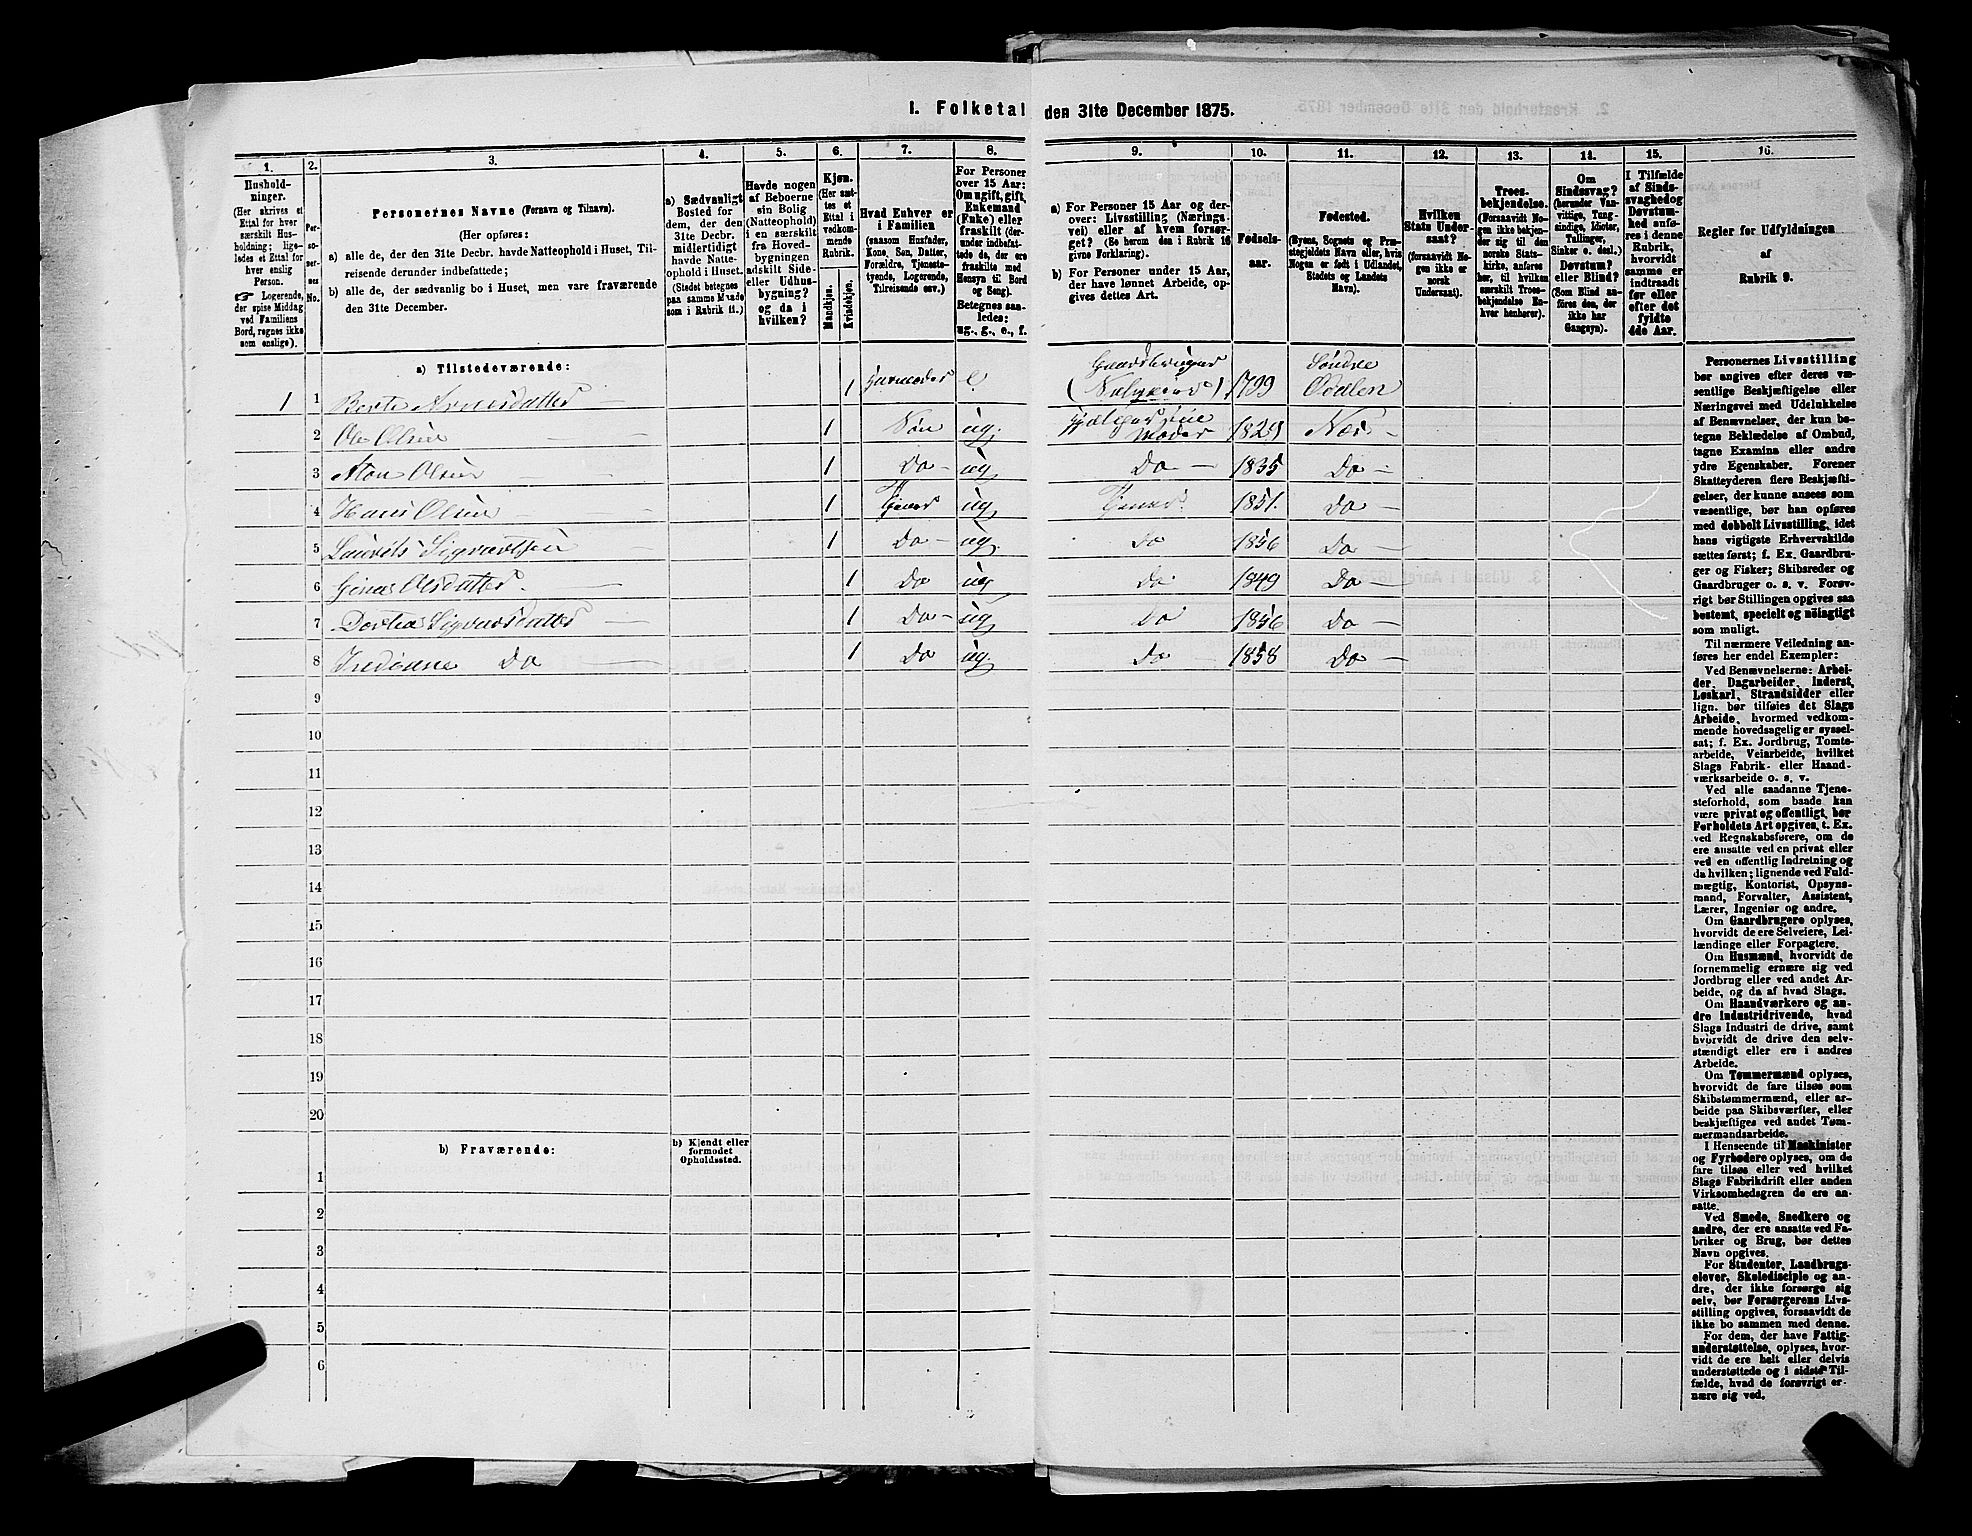 I. Folketal den 31te December 1875.
1. 2. 3. 4. 5. 6. 7. 8. 9. 10. 11. 12. 13. 14. 15. 16.
Hushold-
ninger.
(Her skrives et
Ettal for hver
særskilt Hus-
holdning; lige-
ledes et Ettal for
hver enslig
Person.
☞ Logerende,
der spise Middag
ved Familiens
Bord, regnes ikke
som enslige).
Per-
so-
ner-
nes
No.
Personernes Navne (Fornavn og Tilnavn).
(Her opføres:
a) alle de, der den 31te Decbr. havde Natteophold i Huset, Til-
reisende derunder indbefattede;
b) alle de, der sædvanlig bo i Huset, men vare fraværende
den 31te December.
a) Sædvanligt
Bosted for
dem, der den
31te Decbr.
midlertidigt
havde Natte-
ophold i Huset.
(Stedet betegnes
paa samme Maade
som i Rubrik 11.)
Havde nogen
af Beboerne
sin Bolig
(Natteophold)
i en særskilt
fra Hoved-
bygningen
adskilt Side-
eller Udhus-
bygning?
og da i
hvilken?
Kjøn.
(Her sæt-
tes et
Ettal i
vedkom-
mende
Rubrik.
Mandkjøn.
Kvindekjøn.
Hvad Enhver er
i Familien
(saasom Husfader,
Kone, Søn, Datter,
Forældre, Tjeneste-
tyende, Logerende,
Tilreisende osv.)
For Personer
over 15 Aar:
Om ugift, gift,
Enkemand
(Enke) eller
fraskilt (der-
under indbefat-
tede de, der ere
fraskilte med
Hensyn til Bord
og Seng).
Betegnes saa-
ledes:
ug., g., e., f.
a) For Personer 15 Aar og der-
over: Livsstilling (Nærings-
vei) eller af hvem forsør-
get? (Se herom den i Rubrik 16
givne Forklaring).
b) For Personer under 15 Aar,
der have lønnet Arbeide, op-
gives dettes Art.
Fødsels-
aar.
Fødested.
(Byens, Sognets og Præ-
stegjeldets Navn eller, hvis
Nogen er født i Udlandet,
Stedets og Landets
Navn).
Hvilken
Stats Under-
saat?
(forsaavidt No-
gen ikke er
norsk
Undersaat).
Troes-
bekjendelse.
(Forsaavidt No-
gen ikke bekjen-
der sig til den
norske Stats-
kirke, anføres
her, til hvilken
særskilt Troes-
bekjendelse En-
hver henhører).
Om
Sindssvag?
(herunder Van-
vittige, Tung-
sindige, Idioter,
Tullinger,
Sinker o. desl.)
Døvstum?
eller Blind?
(Som Blind an-
føres den, der
ikke har
Gangsyn).
I Tilfælde
af Sinds-
svaghed og
Døvstum-
hed anfø-
res i denne
Rubrik,
hvorvidt
samme er
indtraadt
før eller
efter det
fyldte
4de Aar.
Regler for Udfyldningen
af
Rubrik 9.
a) Tilstedeværende:
1 1 Berte Arnesdatter 1 Husmoder e. Gaardbruger (Selveier) 1799 Søndre Odalen
2 Ole Olsen 1 Søn ug. Hjælper sine Moder 1829 Næs
3 Aton Olsen 1 Do ug Do 1835 Do
4 Hans Olsen 1 Tjener ug Tjener. 1851. Do
5 Laurits Sigvartsen 1 Do ug. Do 1856 Do
6 Gina Olsdatter. 1 Do ug Do 1849 Do
7 Dortea Sigvartsdatter 1 Do ug Do 1856 Do
8 Do 1 Do ug Do 1858 Do
9
10
11
12
13
14
15
16
17
18
19
20
b) Fraværende:
b) Kjendt eller
formodet
Opholdssted.
1
2
3
4
5
6
Personernes Livsstilling
bør angives efter deres væ-
sentlige Beskjæftigelse eller
Næringsvei med Udelukkelse
af Benævnelser, der kun be-
tegne Beklædelse af Ombud,
tagne Examina eller andre
ydre Egenskaber. Forener
Skatteyderen flere Beskjæfti-
gelser, der kunne ansees som
væsentlige, bør han opføres
med dobbelt Livsstilling, idet
hans vigtigste Erhvervskilde
sættes først; f. Ex. Gaardbru-
ger og Fisker; Skibsreder og
Gaardbruger o. s. v. Forøv-
rigt bør Stillingen opgives saa
bestemt, specielt og nøiagtigt
som muligt.
Til nærmere Veiledning an-
føres her endel Exempler:
Ved Benævnelserne: Arbei-
der, Dagarbeider, Inderst,
Løskarl, Strandsidder eller
lign. bør tilføies det Slags
Arbeide, hvormed vedkom-
mende hovedsagelig er syssel-
sat; f. Ex. Jordbrug, Tomte-
arbeide, Veiarbeide, hvilket
Slags Fabrik- eller Haand-
værksarbeide o. s. v.
Ved alle saadanne Tjene-
steforhold, som baade kan
være privat og offentligt, bør
Forholdets Art opgives, t. Ex.
ved Regnskabsførere, om de
ere ansatte ved en privat eller
ved en offentlig Indretning og
da hvilken; lignende ved Fuld-
mægtig, Kontorist, Opsyns-
mand, Forvalter, Assistent,
Lærer, Ingeniør og andre.
Om Gaardbrugere oplyses,
hvorvidt de ere Selveiere, Lei-
lændinge eller Forpagtere.
Om Husmænd, hvorvidt de
fornemmelig ernære sig ved
Jordbrug eller ved andet Ar-
beide, og da af hvad Slags.
Om Haandværkere og an-
dre Industridrivende, hvad
Slags Industri de drive, samt
hvorvidt de drive den selv-
stændigt eller ere i andres
Arbeide.
Om Tømmermænd oplyses,
hvorvidt de fare tilsøs som
Skibstømmermænd, eller ar-
beide paa Skibsværfter, eller
beskjæftiges ved andet Tøm-
mermandsarbeide.
I Henseende til Maskinister
og Fyrbødere oplyses, om de
fare tilsøs eller ved hvilket
Slags Fabrikdrift eller anden
Virksomhedsgren de ere an-
satte.
Ved Smede, Snedkere og
andre, der ere ansatte ved Fa-
briker og Brug, bør dettes
Navn opgives.
For Studenter, Landbrugs-
elever, Skoledisciple og an-
dre, der ikke forsørge sig
selv, bør Forsørgerens Livs-
stilling opgives, forsaavidt de
ikke bo sammen med denne.
For dem, der have Fattig-
understøttelse, oplyses, hvor-
vidt de ere helt eller delvis
understøttede og i sidste Til-
fælde, hvad de forøvrigt er-
nære sig ved.